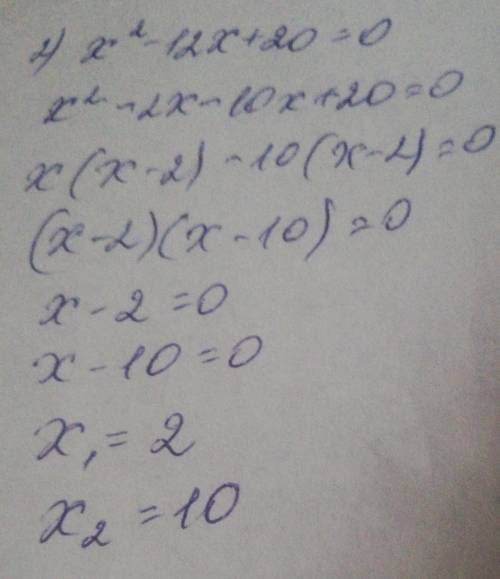 2) x² - 12x + 20 = 0
x² - 2x - 10x + 20 = 0
x(x - 2) - 10(x - 2) = 0
(x - 2)(x - 10) = 0
x - 2 = 0
x - 10 = 0
x₁ = 2
x₂ = 10